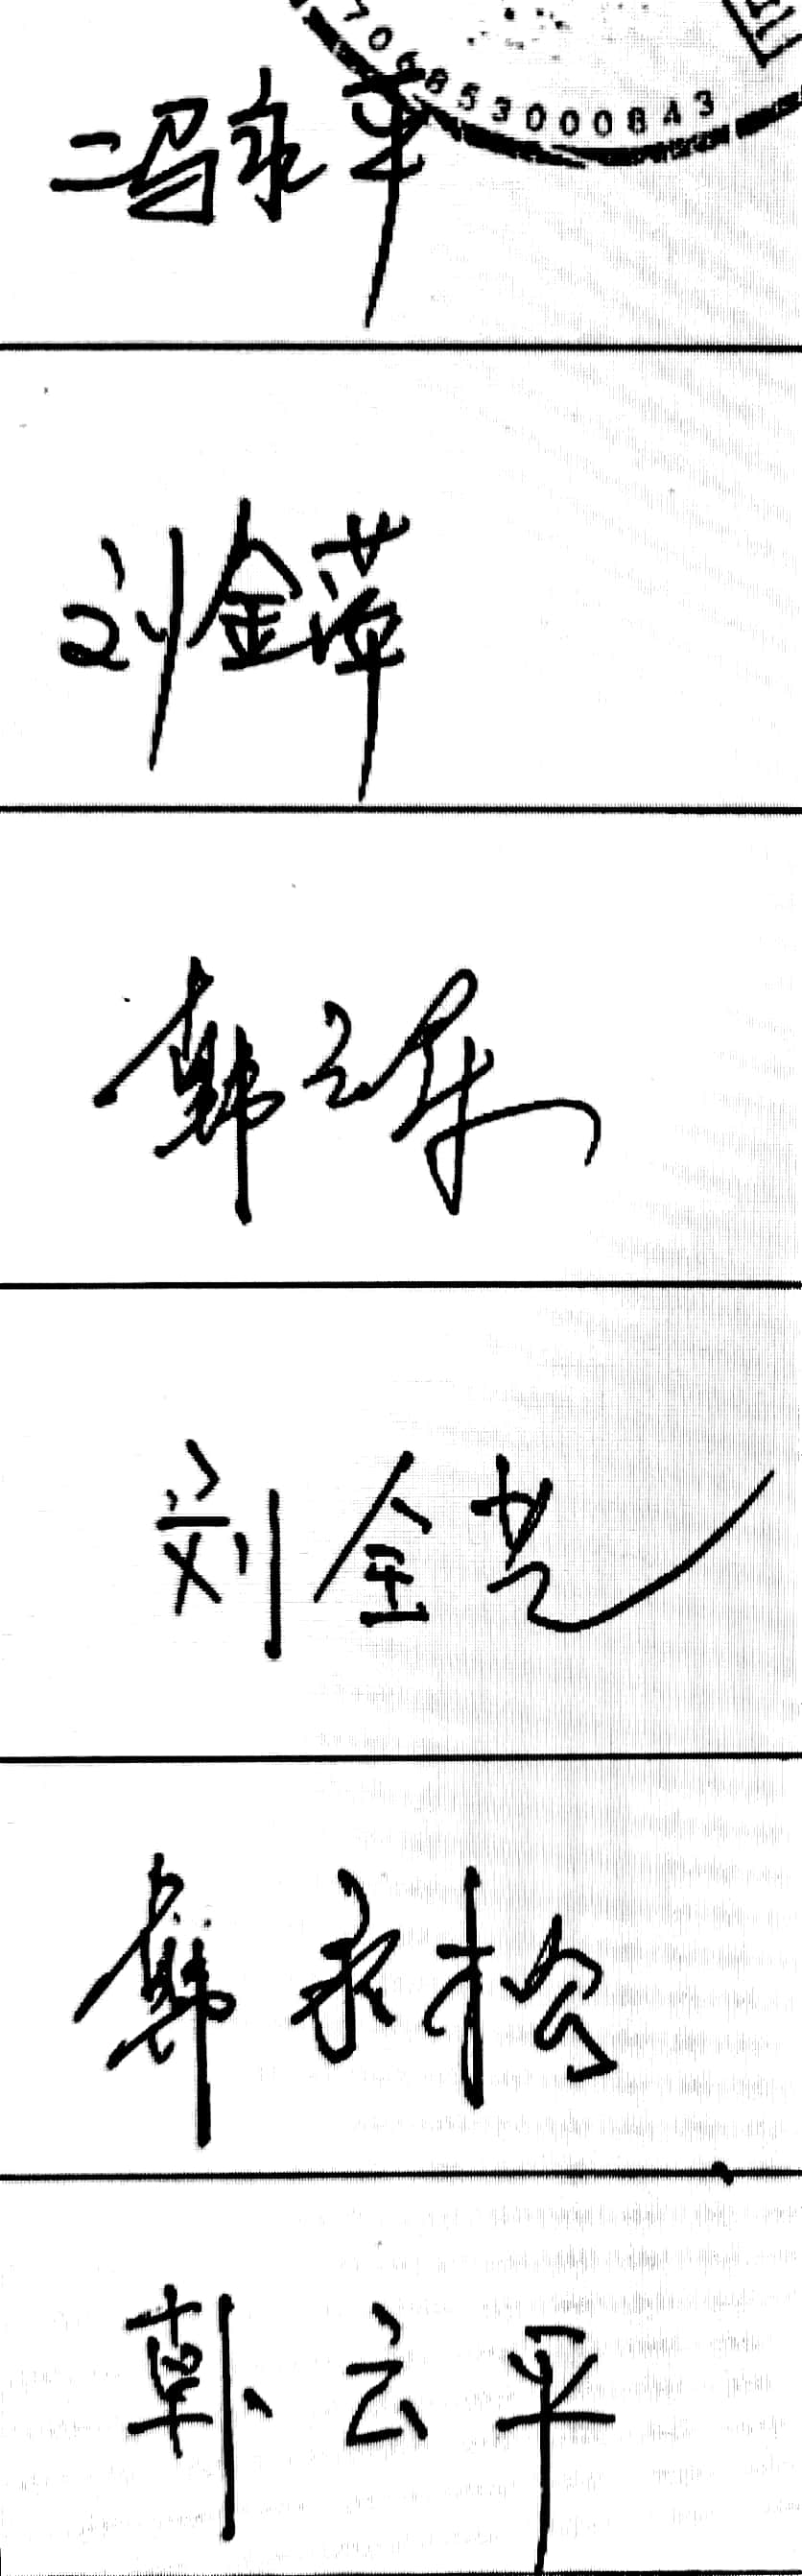 7068530008A3
冯永平
刘金萍
韩云
刘金芝
韩永松
韩云平